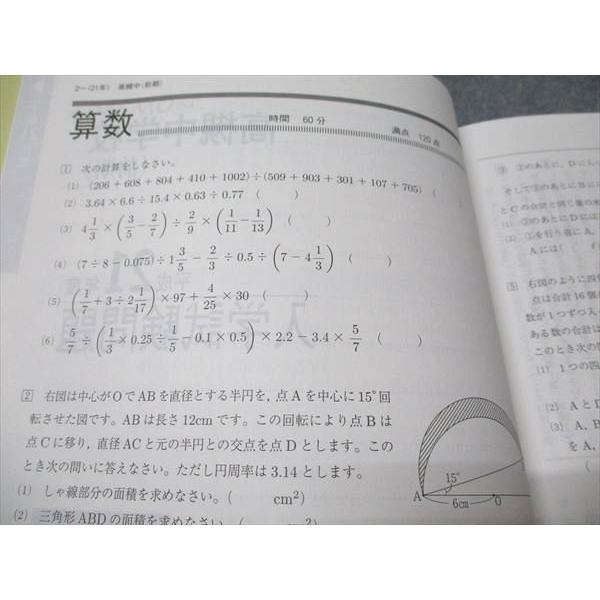 2-(21年) 高槻中(前期)
算数
時間 60分
満点 120点
1 次の計算をしなさい。
(1) (206 + 608 + 804 + 410 + 1002) ÷ (509 + 903 + 301 + 107 + 705) ( )
(2) 3.64 × 6.6 ÷ 15.4 × 0.63 ÷ 0.77 ( )
(3) 4 1/3 × (3/5 - 2/7) ÷ 2/9 × (1/11 - 1/13) ( )
(4) (7 ÷ 8 - 0.075) ÷ 1 3/5 - 2/3 ÷ 0.5 ÷ (7 - 4 1/3) ( )
(5) (1/7 + 3 ÷ 2 1/17) × 97 + 4/25 × 30 ( )
(6) 5/7 ÷ (1/3 × 0.25 ÷ 1/5 - 0.1 × 0.5) × 2.2 - 3.4 × 5/7 ( )
2 右図は中心がOでABを直径とする半円を, 点Aを中心に15°回
転させた図です。ABは長さ12cmです。この回転により点Bは
点Cに移り, 直径ACと元の半円との交点を点Dとします。この
とき次の問いに答えなさい。ただし円周率は3.14とします。
(1) しゃ線部分の面積を求めなさい。( cm²)
(2) 三角形ABDの面積を求めなさい。( cm²)
15°
A
6cm
O
3 ②のあとに, Dに入
そして③のあとにBに
とCの合計と同じ量の水
(1) ③のあとにDには
(2) ①を行う前にA,
Aには(
5 右図のように四
点は合計16個
数が1つずつ入
ある数の合計は
このとき次の問
(1) 1つの四
(2) AとD
(3) A, B
をA,